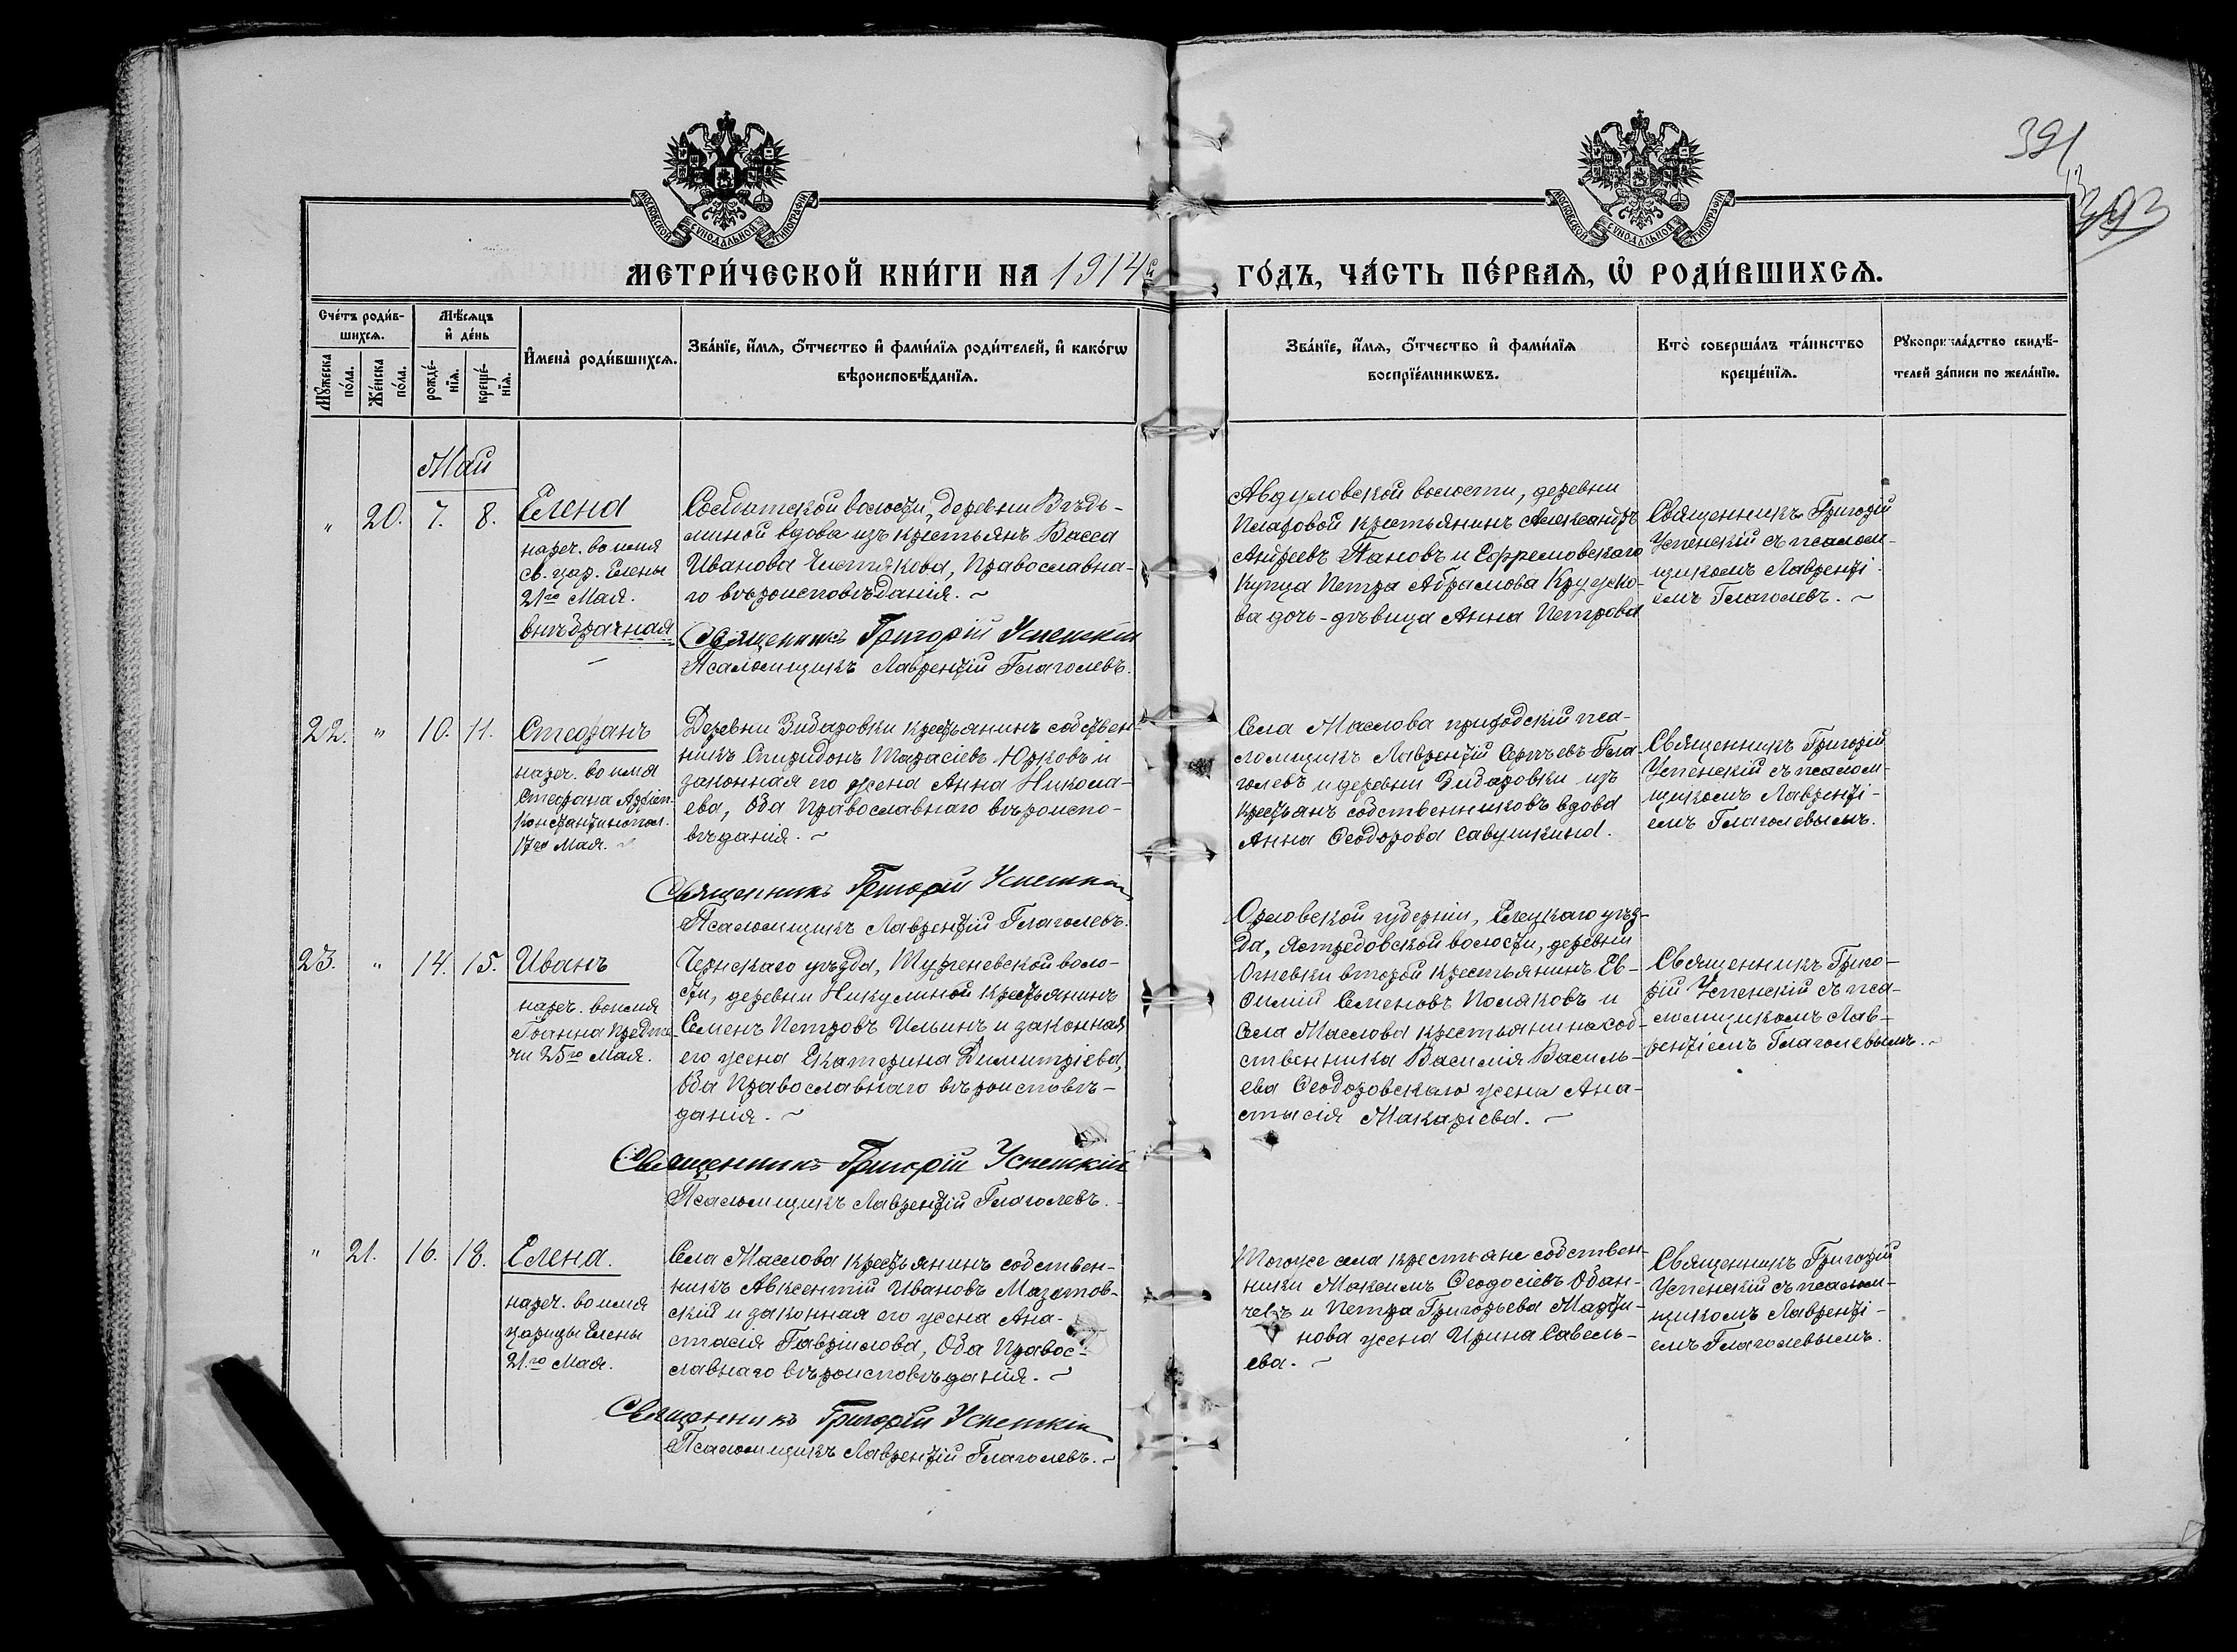 391
393
МОСКОВСКОЙ СѴНОДАЛЬНОЙ ТИПОГРАФІИ
МОСКОВСКОЙ СѴНОДАЛЬНОЙ ТИПОГРАФІИ
МЕТРИ́ЧЕСКОЙ КНИ́ГИ НА 1914 й ГО́ДЪ, ЧА́СТЬ ПЕ́РВАѦ, Ѡ РОДИ́ВШИХСѦ.
Сче́тъ роди́в-
шихсѧ.
Мꙋ́жеска
по́ла.
Же́нска
по́ла.
Мѣ́сѧцъ
и҆ де́нь
рожде́-
нїѧ.
креще́-
нїѧ.
И҆мена̀ роди́вшихсѧ.
Зва́нїе, и҆́мѧ, о҆́тчество и҆ фами́лїѧ роди́телей, и҆ како́гѡ
вѣроисповѣ́данїѧ.
Зва́нїе, и҆́мѧ, о҆́тчество и҆ фами́лїѧ
воспрїе́мникѡвъ.
Кто̀ соверша́лъ та́инство
креще́нїѧ.
Рꙋкоприкла́дство свидѣ́-
телей за́писи по жела́нїю.
Май
" 20. 7. 8.
Елена
нареч. во имя
св. цар. Елены
21го Мая.
внѣбрачная
Солдатской волости, деревни Вѣдь-
миной вдова изъ крестьянъ Васса
Иванова Чистякова, Православна-
го вѣроисповѣданія. ~
Священникъ Григорій Успенскій
Псаломщикъ Лаврентій Глаголевъ.
Авдуловской волости, деревни
крестьянинъ Александръ
Андреевъ Пановъ и Ефремовскаго
купца Петра Абрамова
ва дочь-дѣвица Анна Петрова
Священникъ Григорій
Успенскій съ псалом-
щикомъ Лавренті-
емъ Глаголевъ. ~
22. " 10. 11.
Стефанъ
нареч. во имя
Стефана Архіеп.
Константинопол.
17го Мая. ~
Деревни Зибаровки крестьянинъ собствен-
никъ Спиридонъ Тарасіевъ Юрковъ и
законная его жена Анна Никола-
ева, Оба Православнаго вѣроиспо-
вѣданія. ~
Священникъ Григорій Успенскій
Псаломщикъ Лаврентій Глаголевъ.
Села Маслова приходскій пса-
ломщикъ Лаврентій Сергѣевъ Гла-
голевъ и деревни Зибаровки изъ
крестьянъ собственниковъ вдова
Анна Ѳеодорова Савушкина.
Священникъ Григорій
Успенскій съ псалом-
щикомъ Лавренті-
емъ Глаголевымъ.
23. " 14. 15.
Иванъ
нареч. во имя
Іоанна Предте-
чи 25го Мая.
Чернскаго уѣзда, Тургеневской воло-
сти, деревни Никулиной крестьянинъ
Семенъ Петровъ Ильинъ и законная
его жена Екатерина Димитріева,
Оба Православнаго вѣроисповѣ-
данія. ~
Священникъ Григорій Успенскій
Псаломщикъ Лаврентій Глаголевъ.
Орловской губерніи, Елецкаго уѣз-
да, Ястребовской волости, деревни
Огневки второй крестьянинъ Ев-
фимій Семеновъ Поляковъ и
Села Маслова крестьянина соб-
ственника Василія Василь-
ева Ѳеодоровскаго жена Ана-
стасія Макаріева. ~
Священникъ Григо-
рій Успенскій съ пса-
ломщикомъ Лав-
рентіемъ Глаголевымъ. ~
" 21. 16. 18.
Елена.
нареч. во имя
царицы Елены
21го Мая.
Села Маслова крестьянинъ собствен-
никъ Авксентій Ивановъ Мазатов-
скій и законная его жена Ана-
стасія Гавріилова, Оба Правос-
лавнаго вѣроисповѣданія. ~
Священникъ Григорій Успенскій
Псаломщикъ Лаврентій Глаголевъ. ~
Тогоже села крестьяне собствен-
ники Максимъ Ѳеодосіевъ
и Петра Григорьева Марты-
нова жена Ирина Савель-
ева. ~
Священникъ Григорій
Успенскій съ псалом-
щикомъ Лавренті-
емъ Глаголевымъ.